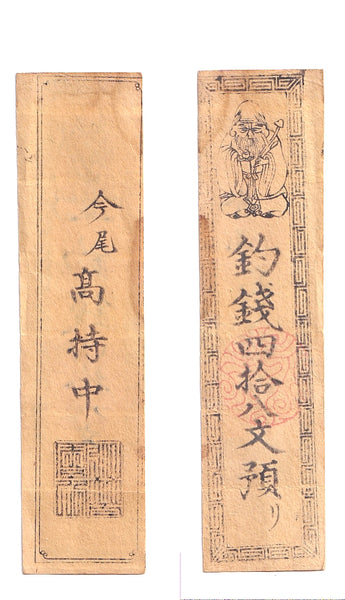 釣錢四拾八文預り
今尾
髙持中